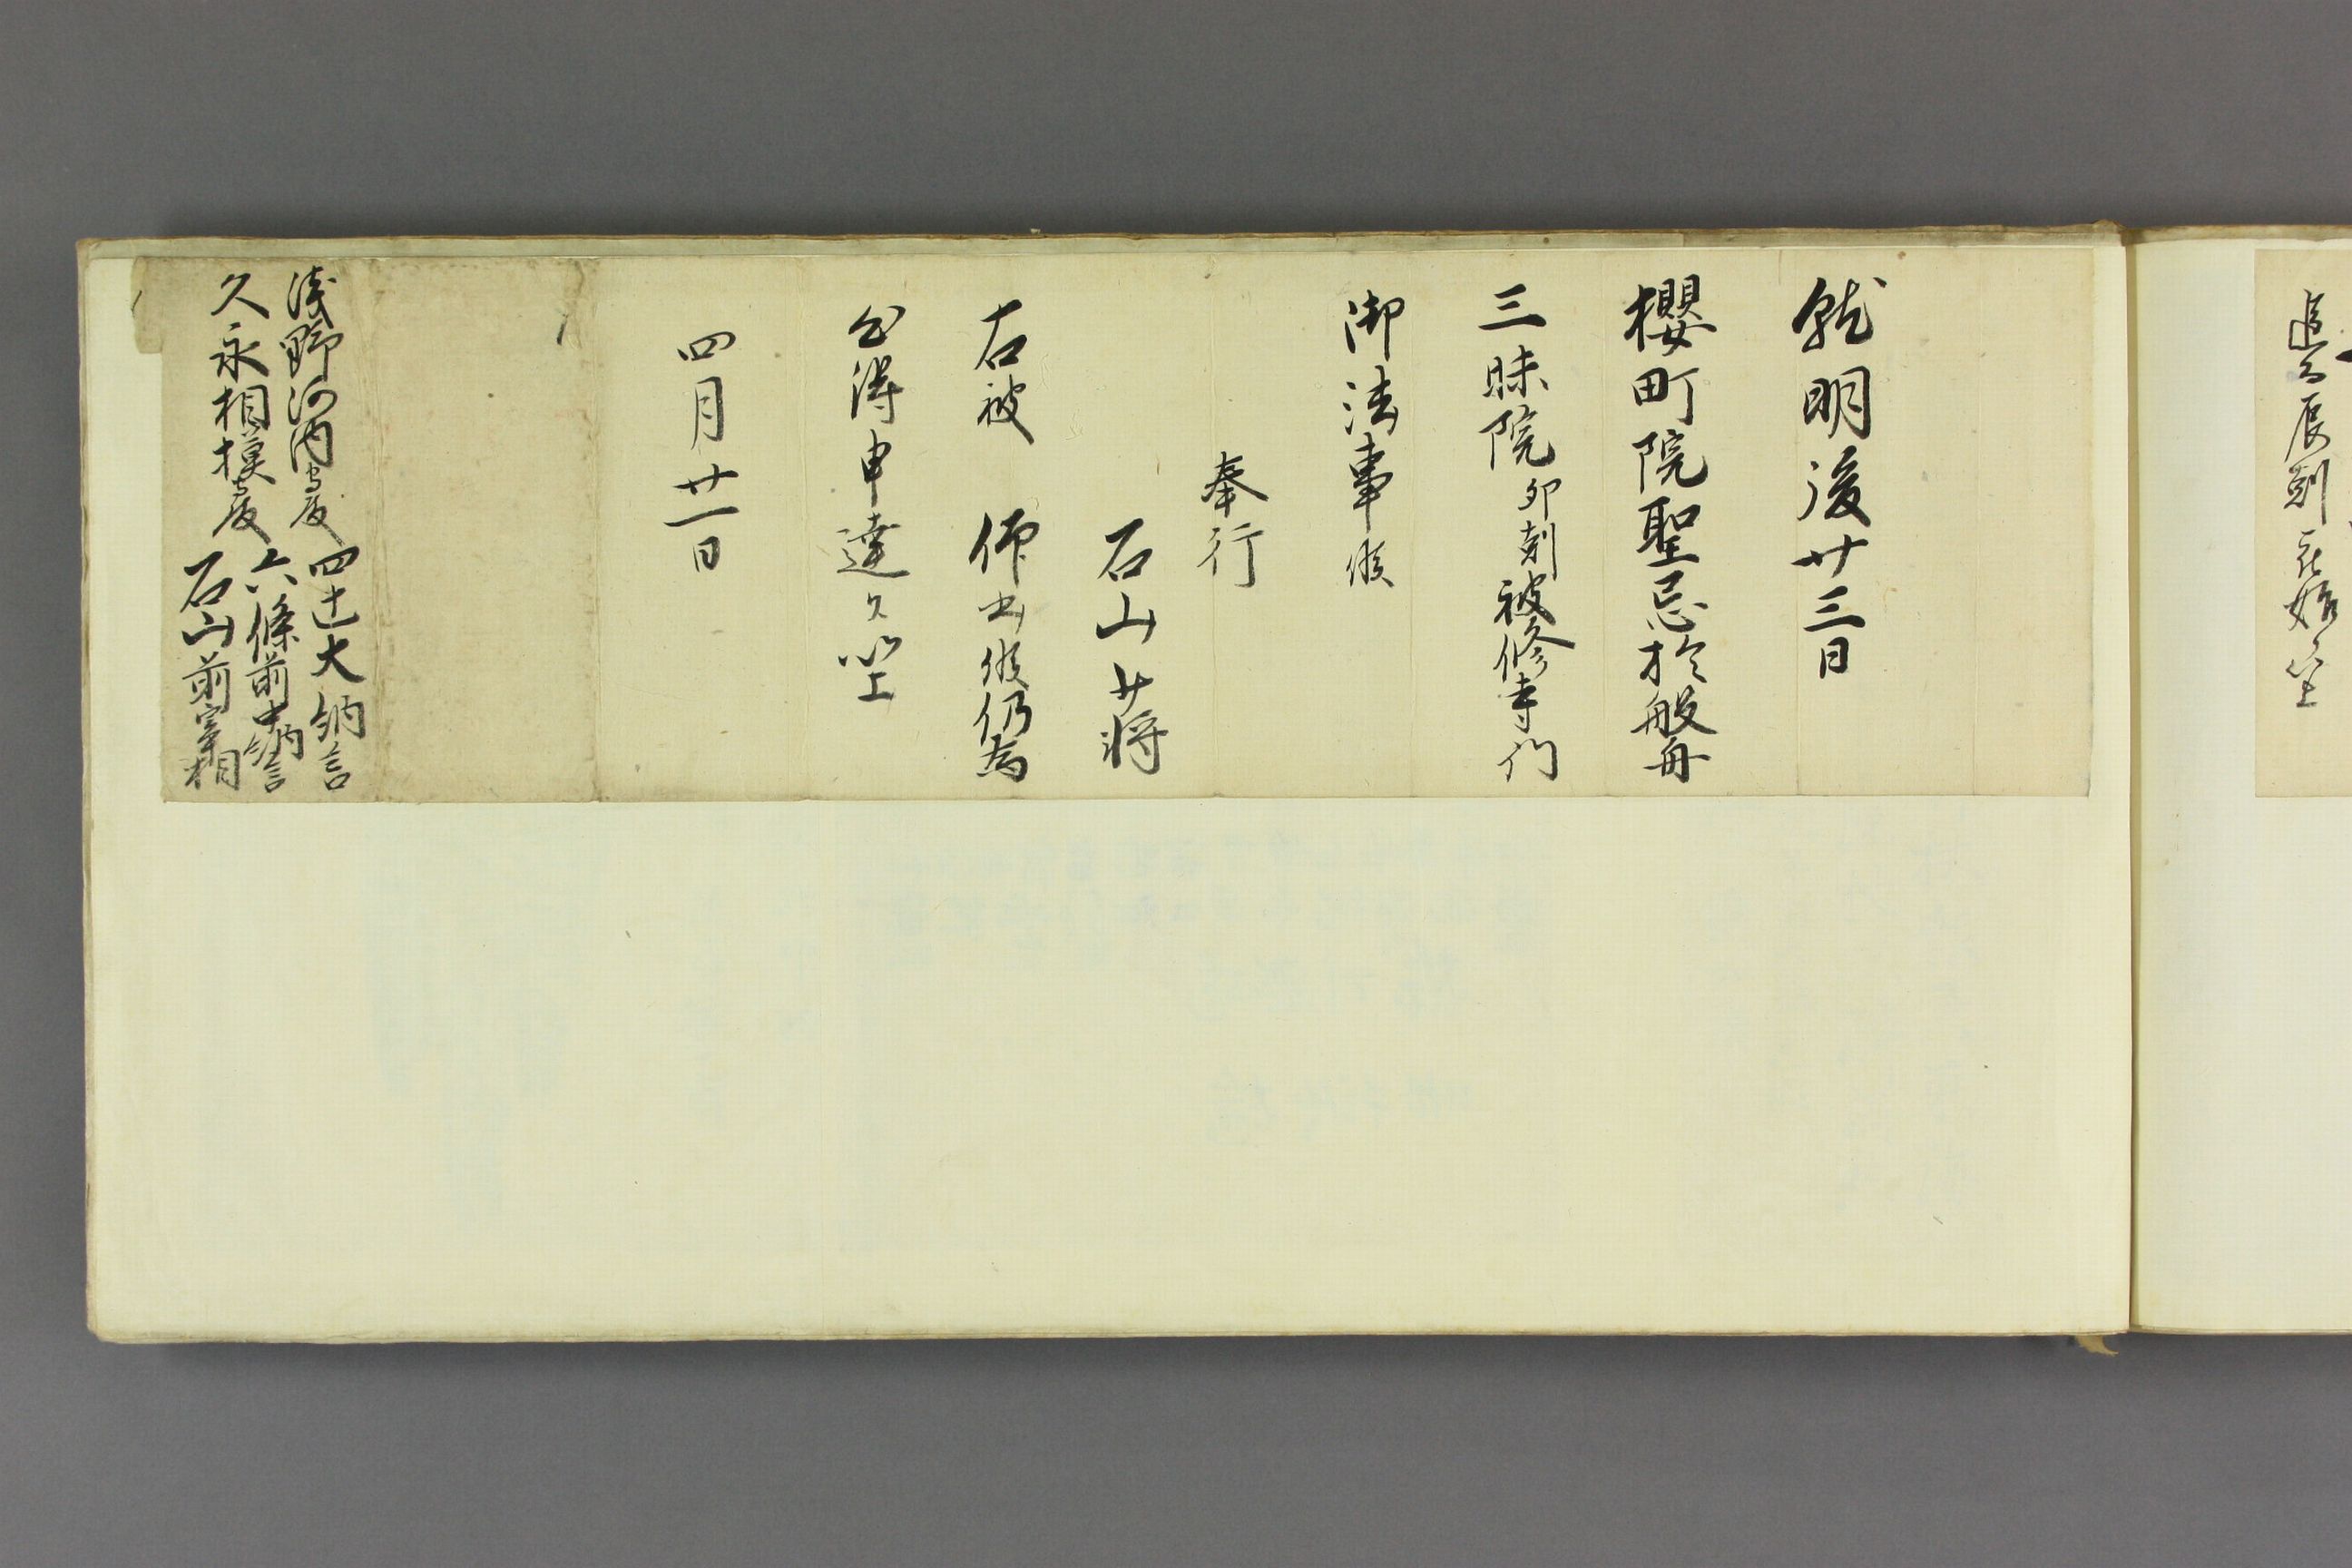 追而辰刻
就明後廿三日
櫻町院聖忌於般舟
三昧院卯刻被修寺門
御法事候
奉行
石山少将
右被　仰出候仍為
御心得申達候以上
四月廿一日
浅野河内守殿
久永相模守殿
四辻大納言
六條前中納言
石山前宰相